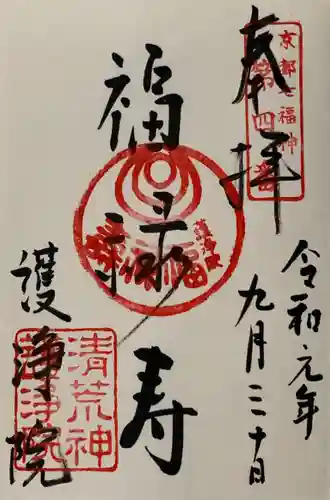 奉拝
京都七福神
第四番
令和元年
九月三十日
福禄寿
護浄院
福禄寿
護浄院
清荒神
護浄院